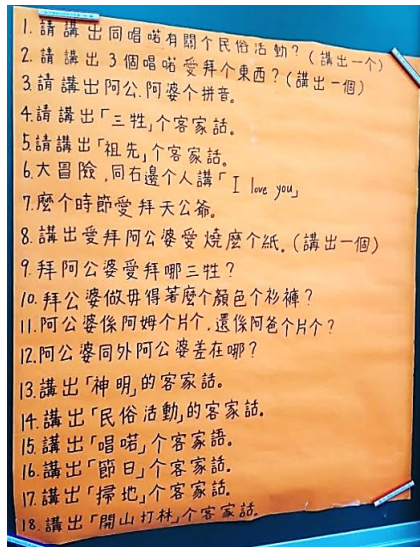 1. 請講出同唱喏有關个民俗活動？(講出一个)
2. 請講出3個唱喏愛拜个東西？(講出一個)
3. 請講出阿公.阿婆个拼音。
4. 請講出「三牲」个客家話。
5. 請講出「祖先」个客家話。
6. 大冒險,同右邊个人講「I love you」
7. 麼个時節愛拜天公爺。
8. 講出愛拜阿公婆愛燒麼个紙。(講出一個)
9. 拜阿公婆愛拜哪三牲？
10. 拜公婆做毋得著麼个顏色个衫褲？
11. 阿公婆係阿姆个片个,還係阿爸个片个？
12. 阿公婆同外阿公婆差在哪？
13. 講出「神明」的客家話。
14. 講出「民俗活動」的客家話。
15. 講出「唱喏」个客家語。
16. 講出「節日」个客家話。
17. 講出「掃地」个客家話。
18. 講出「開山打林」个客家話。